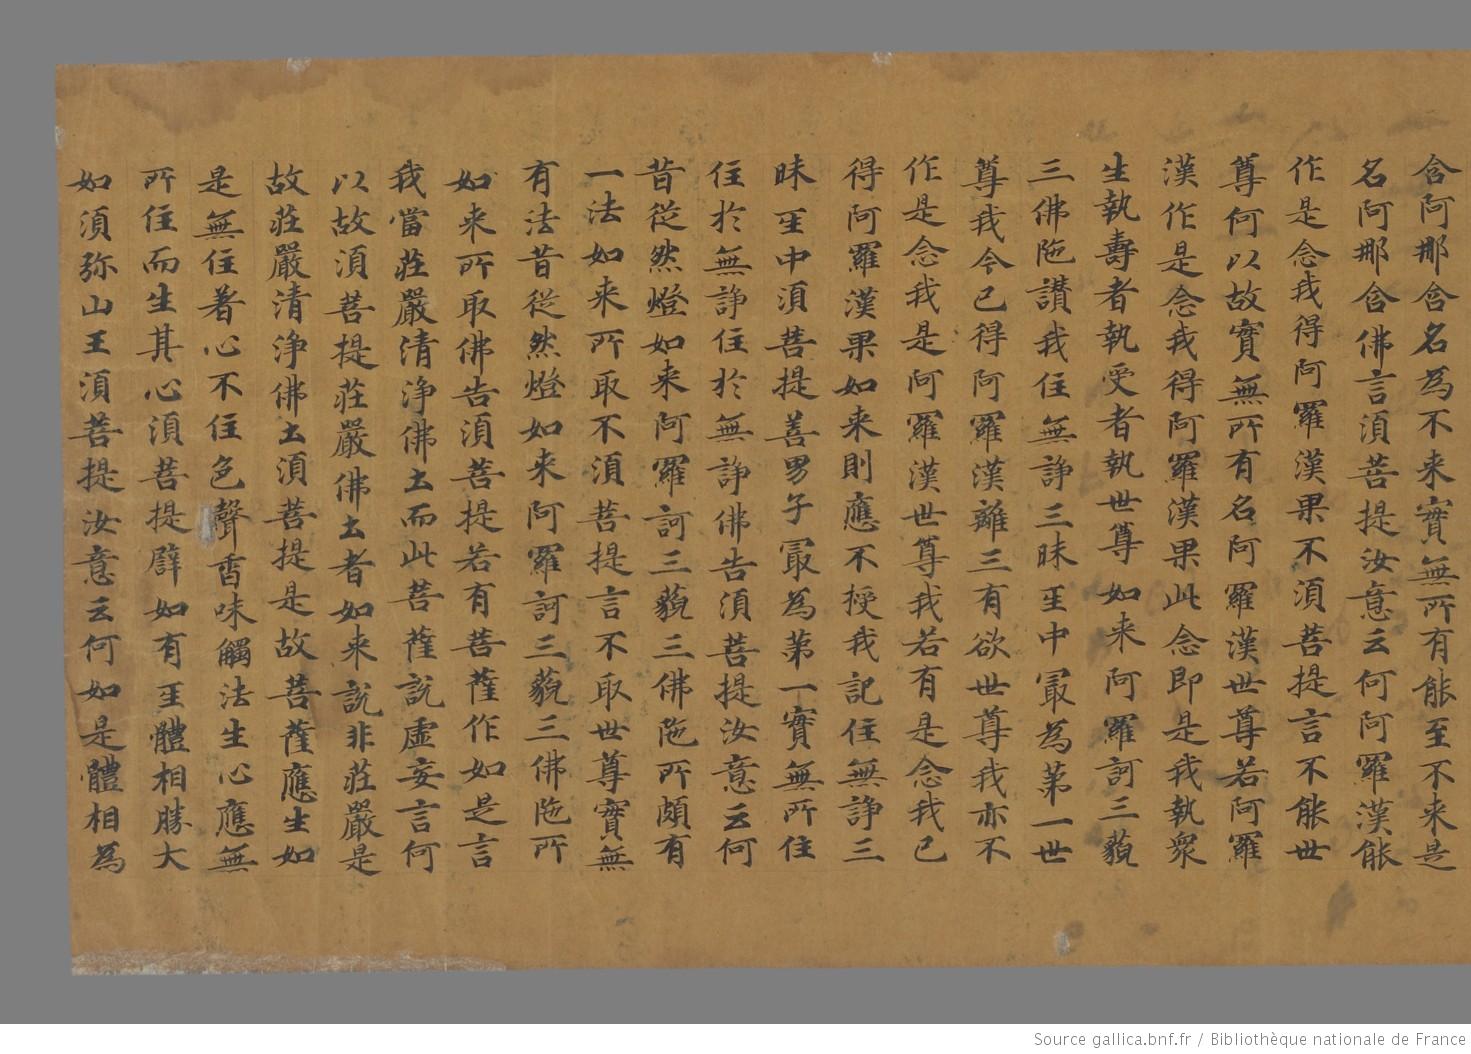 含阿那含名為不来實無所有能至不来是
名阿那含佛言須菩提汝意云何阿羅漢能
作是念我得阿羅漢果不須菩提言不能世
尊何以故實無所有名阿羅漢世尊若阿羅
漢作是念我得阿羅漢果此念即是我執衆
生執壽者執受者執世尊如来阿羅訶三藐
三佛陁讃我住無諍三昧㞷中冣為苐一世
尊我今已得阿羅漢離三有欲世尊我亦不
作是念我是阿羅漢世尊我若有是念我已
得阿羅漢果如来則應不授我記住無諍三
昧㞷中須菩提善男子冣為苐一實無所住
住於無諍住於無諍佛告須菩提汝意云何
昔從然燈如来阿羅訶三藐三佛陁所頗有
一法如来所取不須菩提言不取世尊實無
有法昔從然燈如来阿羅訶三藐三佛陁所
如来所取佛告須菩提若有菩薩作如是言
我當莊嚴清淨佛土而此菩薩說虛妄言何
以故須菩提莊嚴佛土者如来說非莊嚴是
故莊嚴清淨佛土須菩提是故菩薩應生如
是無住著心不住色聲香味觸法生心應無
所住而生其心須菩提譬如有㞷體相勝大
如須弥山王須菩提汝意云何如是體相為
Source gallica.bnf.fr / Bibliothèque nationale de France